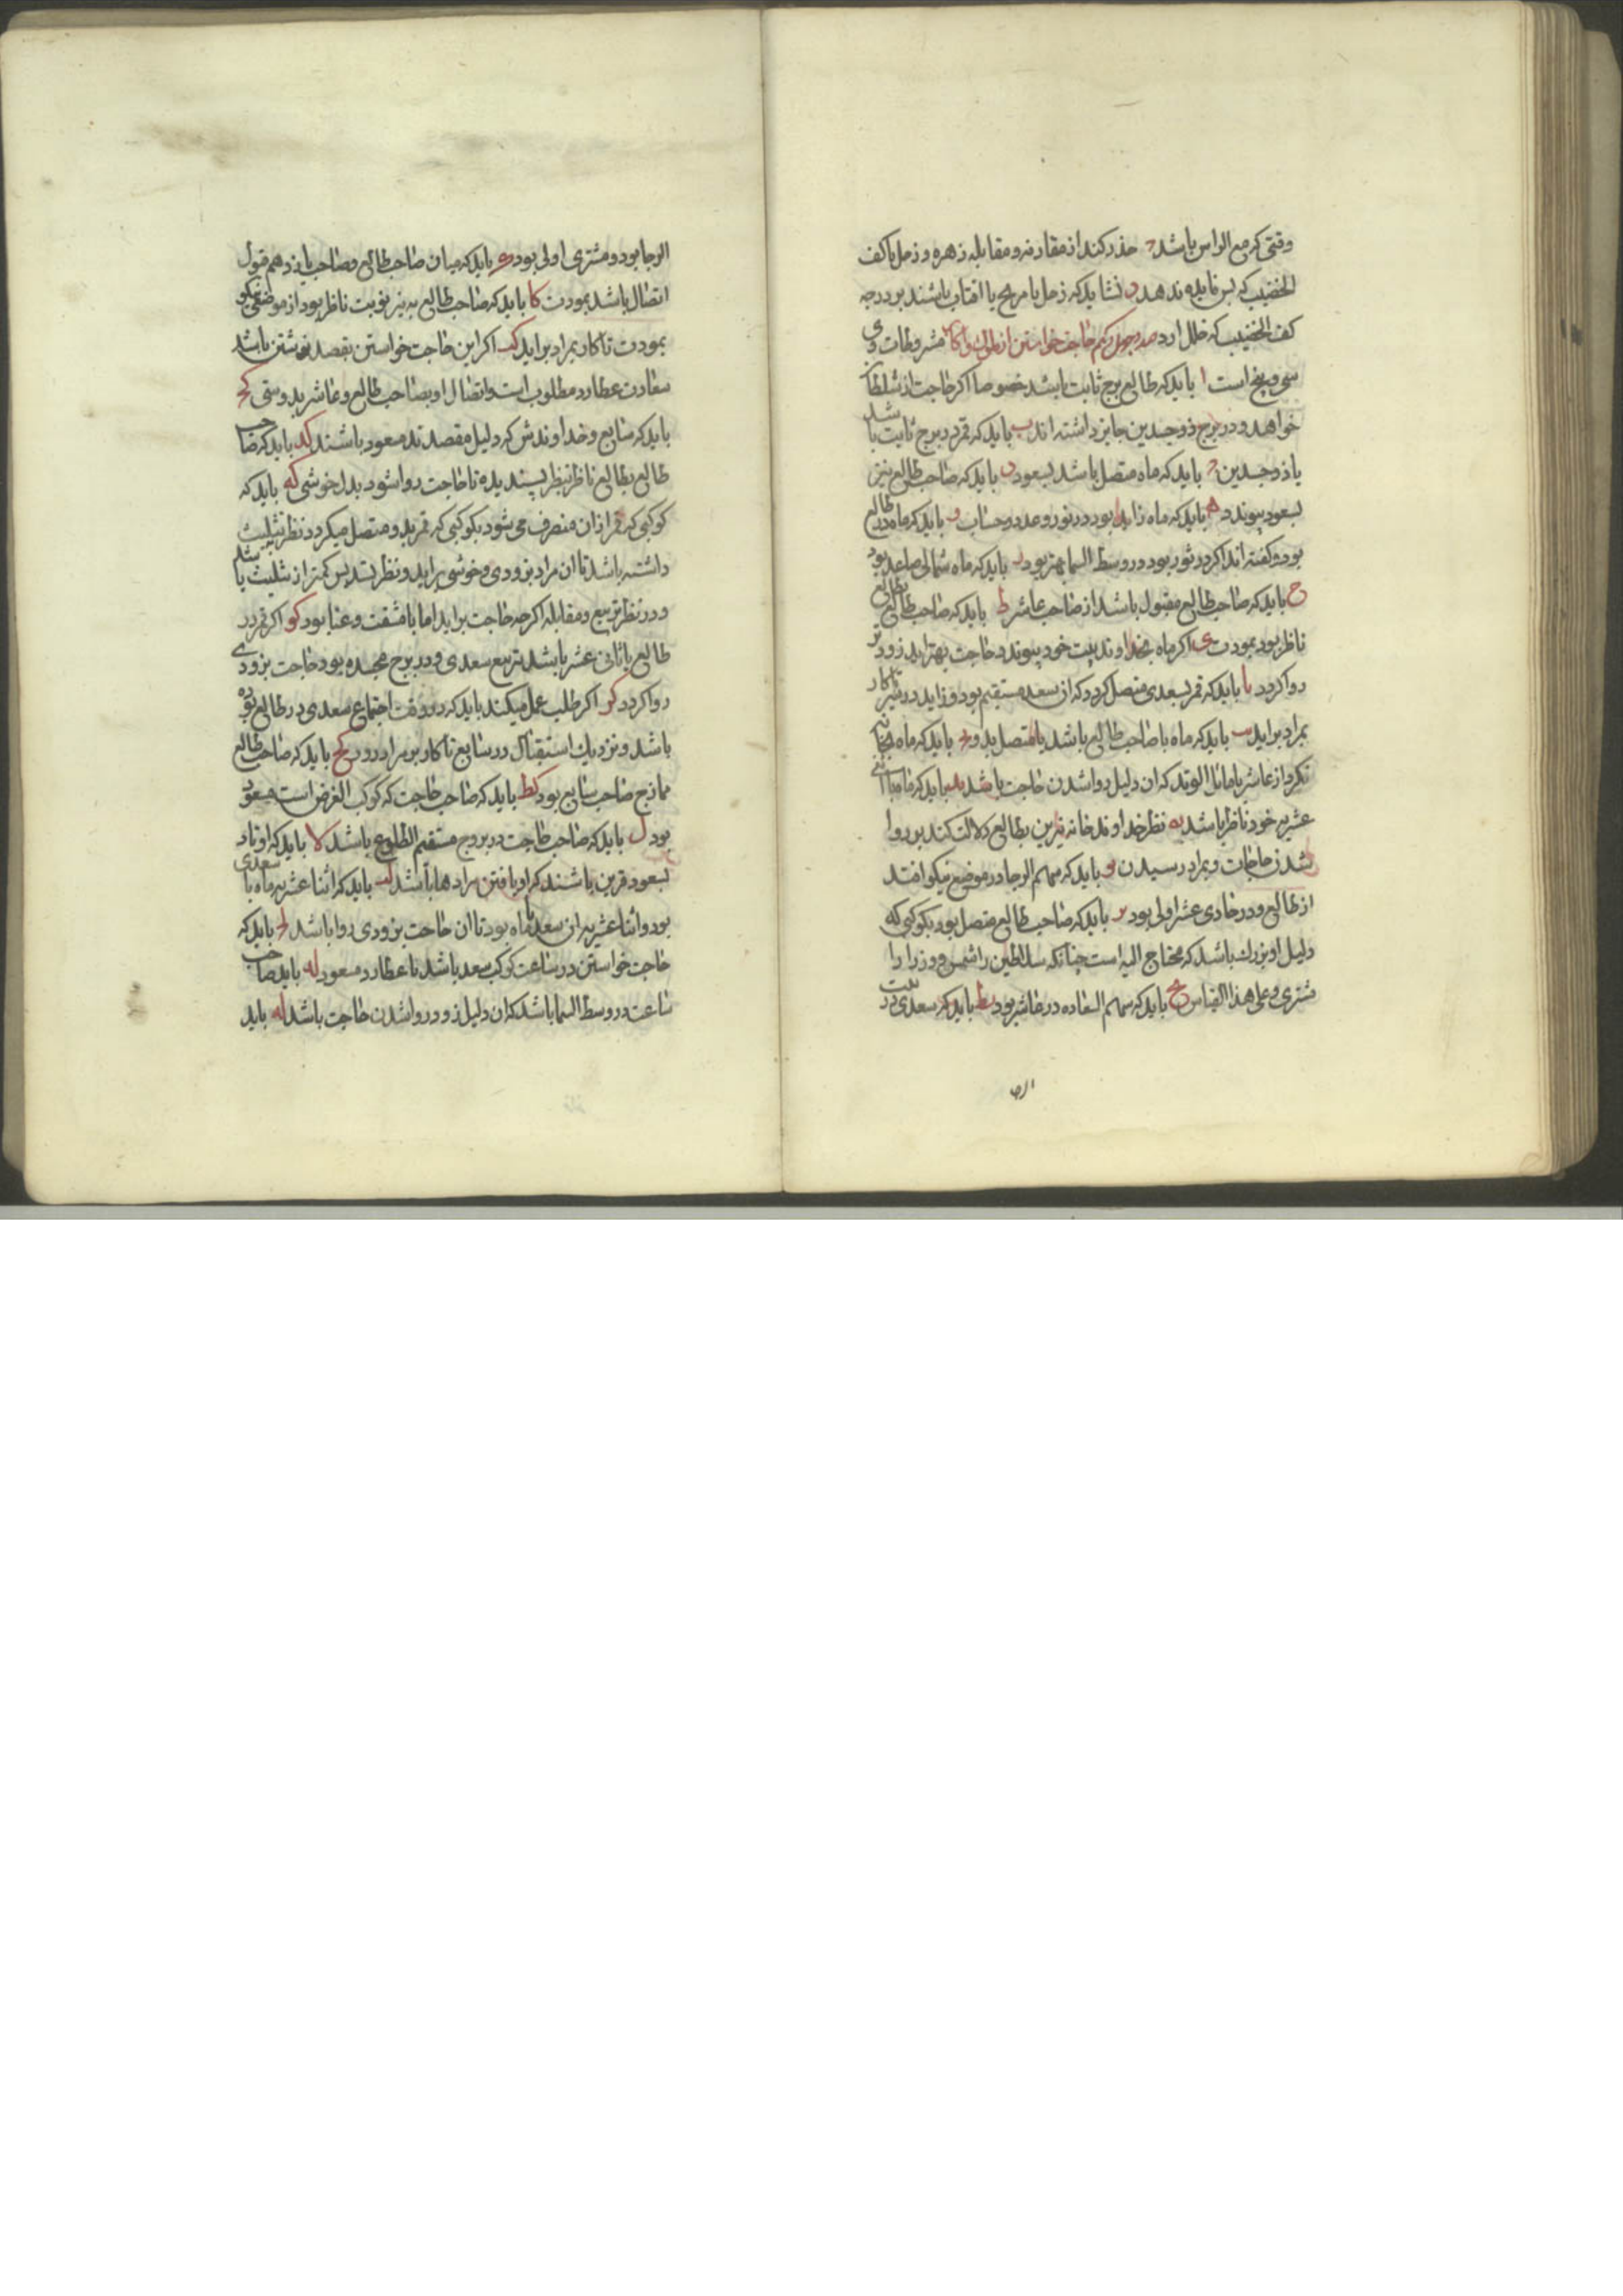 وقتی که مع الراس باشد ج حذر کند از مقارنه و مقابله زهره و زحل با کف
الخضیب که بس فایده ندهد د نشاید که زحل یا مریخ یا افتاب باشند بر درجه
کف الخضیب که خلل ارد حاجت خواستن از ملوک و اکابر مشروطات وی
سی و پنج است ا باید که طالع برج ثابت باشد خصوصا اکر حاجت از سلطان
خواهد و در برج ذوجسدین جایز داشته اند ب باید که قمر در برج ثابت باشد
یا ذوجسدین ج باید که ماه متصل باشد بسعود د باید که صاحب طالع نیز
بسعود پیوندد ه باید که ماه زاید بود در نور و عدد و حساب و باید که ماه در طالع
بود و کفته اند اکر در ثور بود در وسط السما بهتر بود ز باید که ماه شمالی صاعد بود
ح باید که صاحب طالع مقبول باشد از صاحب عاشر ط باید که صاحب طالع بطالع
ناظر بود بمودت ی اکر ماه بخداوند بیت خود پیوندد حاجت بهتر اید و زودتر
روا کردد یا باید که قمر بسعدی متصل کردد که ان سعد مستقیم بود و زاید در سیر تا کار
بمراد براید یب باید که ماه با صاحب طالع باشد یا متصل بدو یج باید که ماه بخانه
نکرد از عاشر یا مائل الوتد که ان دلیل روا شدن حاجت باشد ید باید که ماه با اثنی
عشریه خود ناظر باشد یه نظر خداوند خانه نیرین بطالع دلالت کند بر روا
شدن حاجات و بمراد رسیدن یو باید که سهم الرجا در موضع نیکو افتد
از طالع و در حادی عشر اولی بود یز باید که صاحب طالع متصل بود بکوکبی که
دلیل او بزرک باشد که محتاج الیه است چنانکه سلاطین را شمس و وزرا را
مشتری و علی هذا القیاس یح باید که سهم السعاده در عاشر بود یط باید که سعدی در بیت
الرجا بود و مشتری اولی بود ک باید که میان صاحب طالع و صاحب یازدهم قبول
اتصال باشد بمودت کا باید که صاحب طالع به نیر نوبت ناظر بود از موضعی نیکو
بمودت تا کار بمراد براید کب اکر این حاجت خواستن بقصد نوشتن باشد
سعادت عطارد مطلوب است و اتصال او بصاحب طالع و عاشر بدوستی کج
باید که سابع و خداوندش که دلیل مقصدند مسعود باشند کد باید که صاحب
طالع بطالع ناظر بنظر پسندیده تا حاجت روا شود بدلخوشی که باید که
کوکبی که قمر ازان منصرف می شود بکوکبی که قمر بدو متصل میکردد نظر تثلیث
داشته باشد تا ان مراد بزودی و خوشی براید و نظر تسدیس کمتر از تثلیث باشد
و در نظر تربیع و مقابله اکرچه حاجت براید اما با مشقت و عنا بود کو اکر قمر در
طالع یا ثانی عشر باشد بتربیع سعدی و در برج منجسده بود حاجت بزودی
روا کردد کز اکر طلب عمل میکند باید که در وقت اجتماع سعدی در طالع بوده
باشد و نزدیک استقبال در سابع تا کار بر مراد رود کح باید که صاحب طالع
ممازج صاحب سابع بود کط باید که صاحب حاجت که کوکب الغرض است مسعود
بود ل باید که صاحب حاجت در بروج مستقیم الطلوع باشد لا باید که اوتاد
بسعود قرین باشند که او یافتن مرادها باشد لب باید که اثنا عشریه ماه با سعدی
بود و اثنا عشریه ان سعد با ماه بود تا ان حاجت بزودی روا باشد لج باید که
حاجت خواستن در ساعت کوکب سعد باشد تا عطارد مسعود لد باید صاحب
ساعت در وسط السما باشد که ان دلیل زود روا شدن حاجت باشد له باید